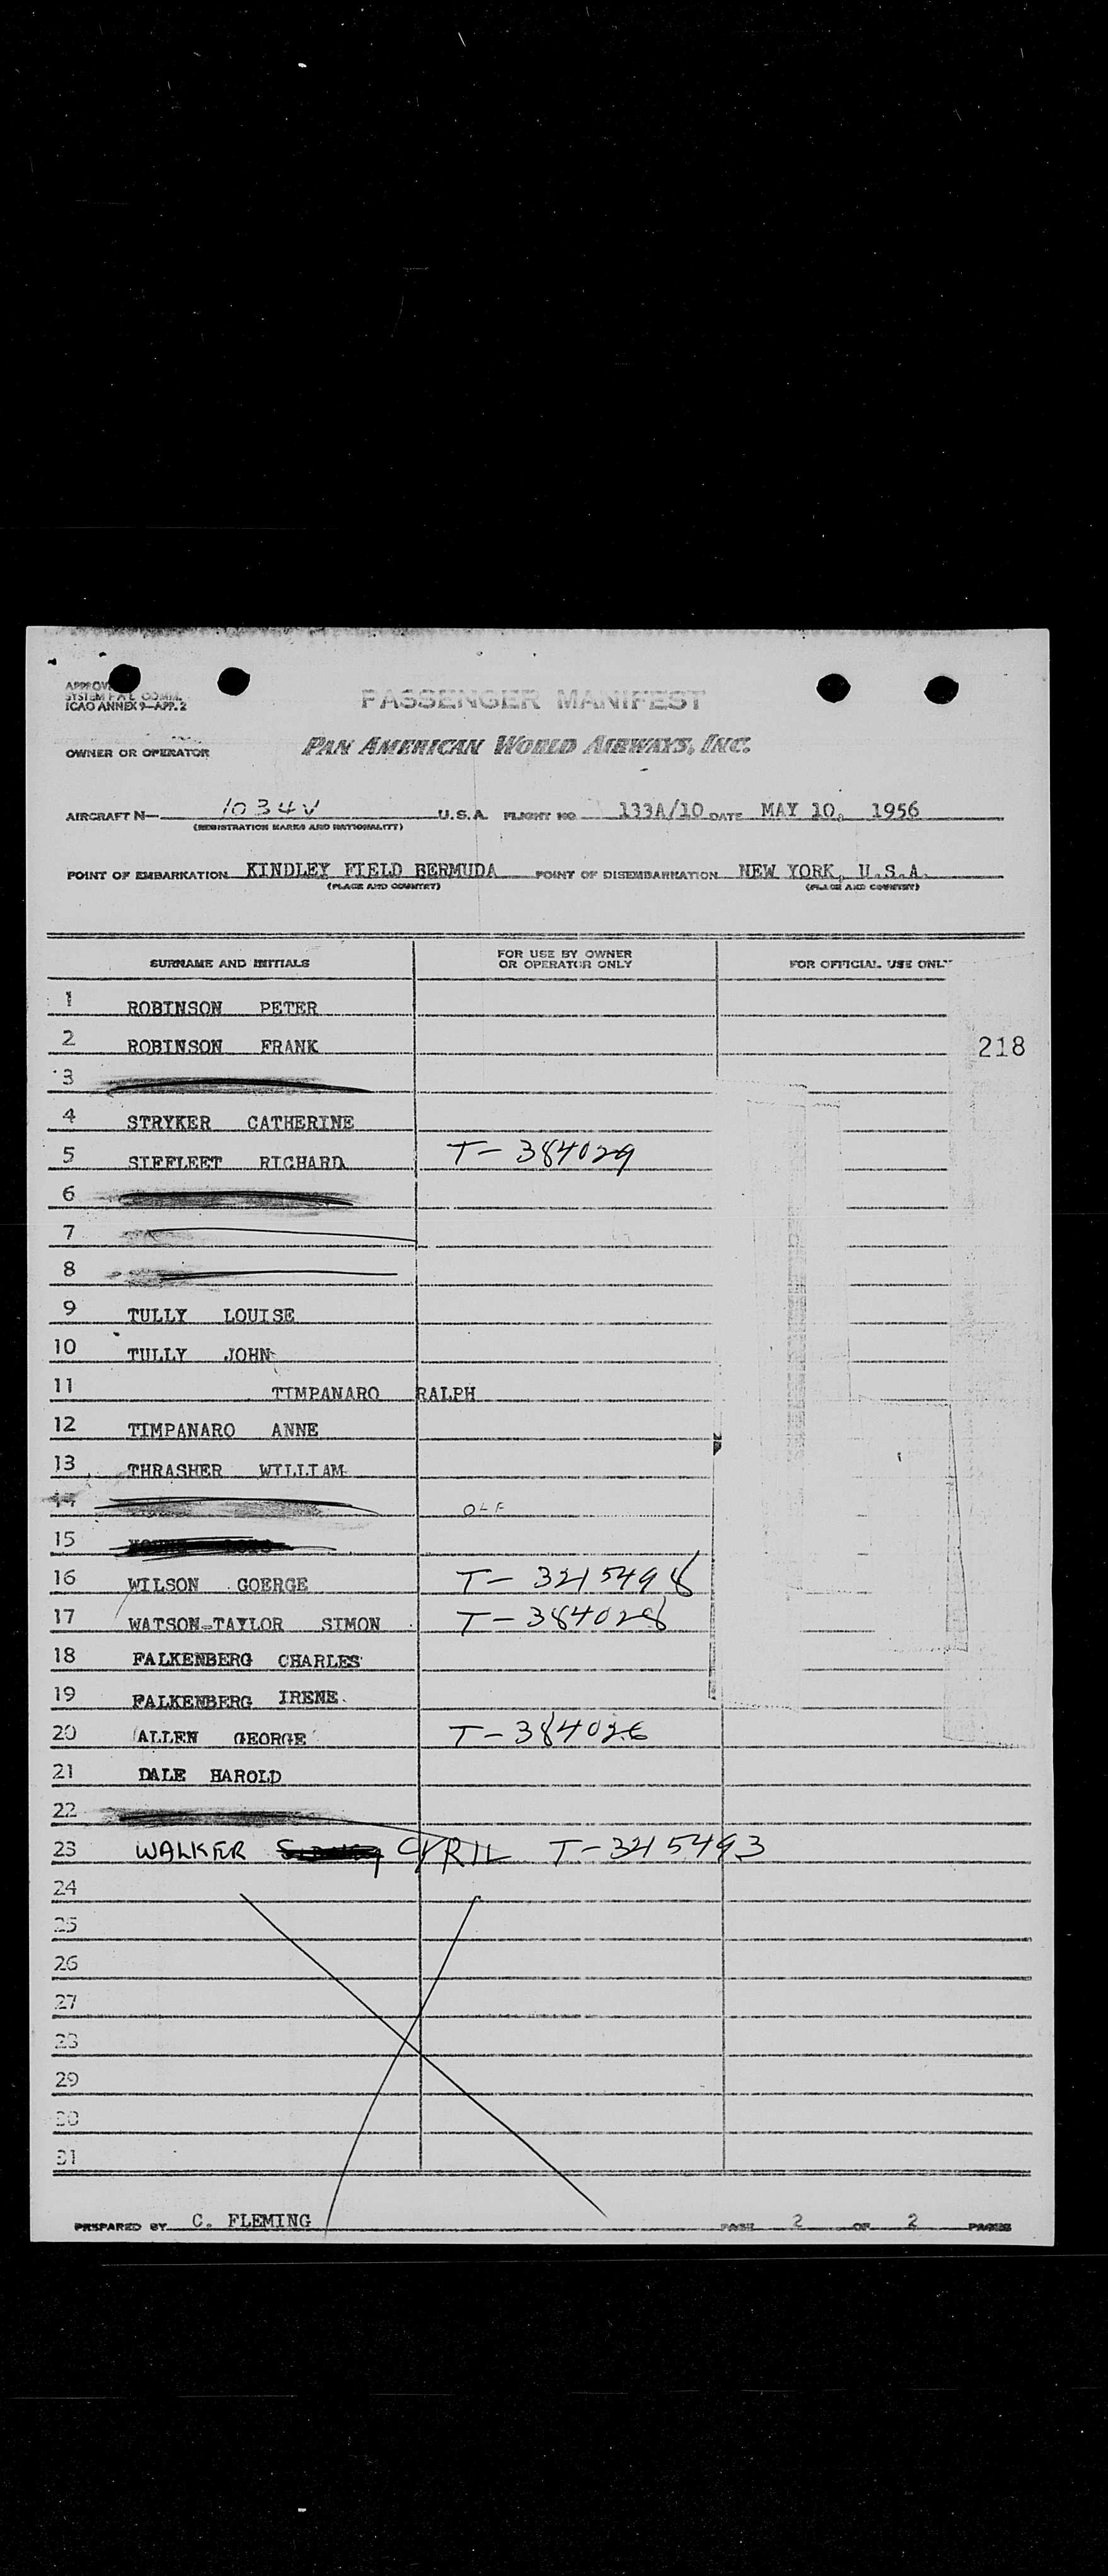 APPROV
SYSTEM F A L COMM.
ICAO ANNEX 9—APP. 2
PASSENGER MANIFEST
OWNER OR OPERATOR PAN AMERICAN WORLD AIRWAYS, INC.
AIRCRAFT N— 1034V U.S.A. FLIGHT NO 133A/10 DATE MAY 10, 1956
(REGISTRATION MARKS AND NATIONALITY)
POINT OF EMBARKATION KINDLEY FIELD BERMUDA POINT OF DISEMBARKATION NEW YORK, U.S.A.
(PLACE AND COUNTRY) (PLACE AND COUNTRY)
SURNAME AND INITIALS FOR USE BY OWNER OR OPERATOR ONLY FOR OFFICIAL USE ONLY
1 ROBINSON PETER
2 ROBINSON FRANK 218
3
4 STRYKER CATHERINE
5 SIFFLEET RICHARD T-384029
6
7
8
9 TULLY LOUISE
10 TULLY JOHN
11 TIMPANARO RALPH
12 TIMPANARO ANNE
13 THRASHER WILLIAM
14
15
16 WILSON GOERGE T-3215498
17 WATSON-TAYLOR SIMON T-384028
18 FALKENBERG CHARLES
19 FALKENBERG IRENE
20 ALLEN GEORGE T-384026
21 DALE HAROLD
22
23 WALKER CYRIL T-3215493
24
25
26
27
28
29
30
31
PREPARED BY C. FLEMING PAGE 2 OF 2 PAGES